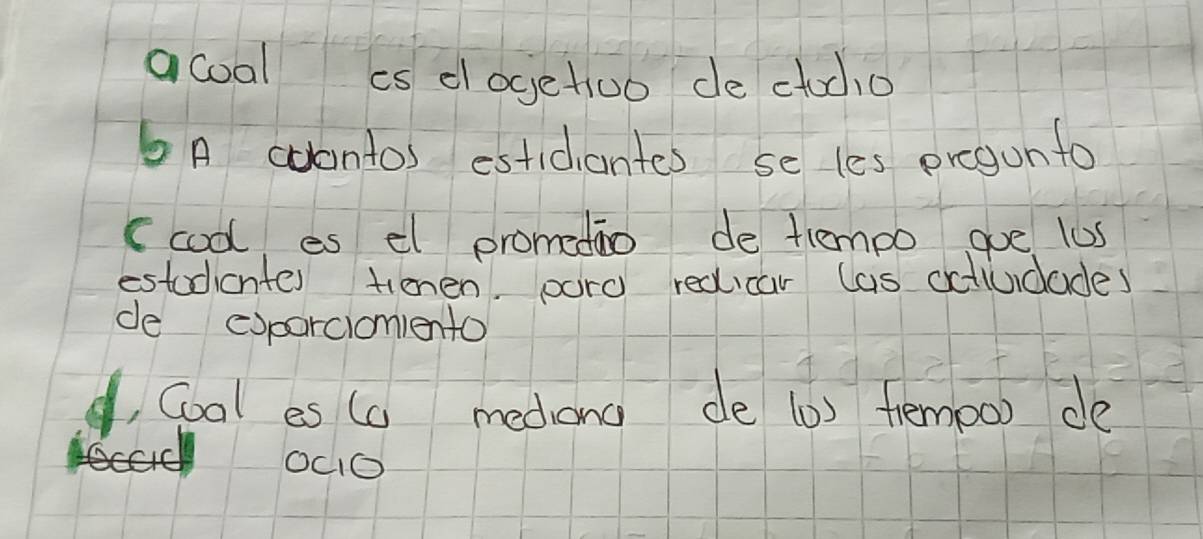 a coal es el ogetivo de etodio
b A cuantos estidiantes se les pregunto
c coal es el promedio de tiempo que los
estodiantes tienen. para realicar las actividades
de esparciomiento
d, Coal es la mediana de los tiempos de
ocio